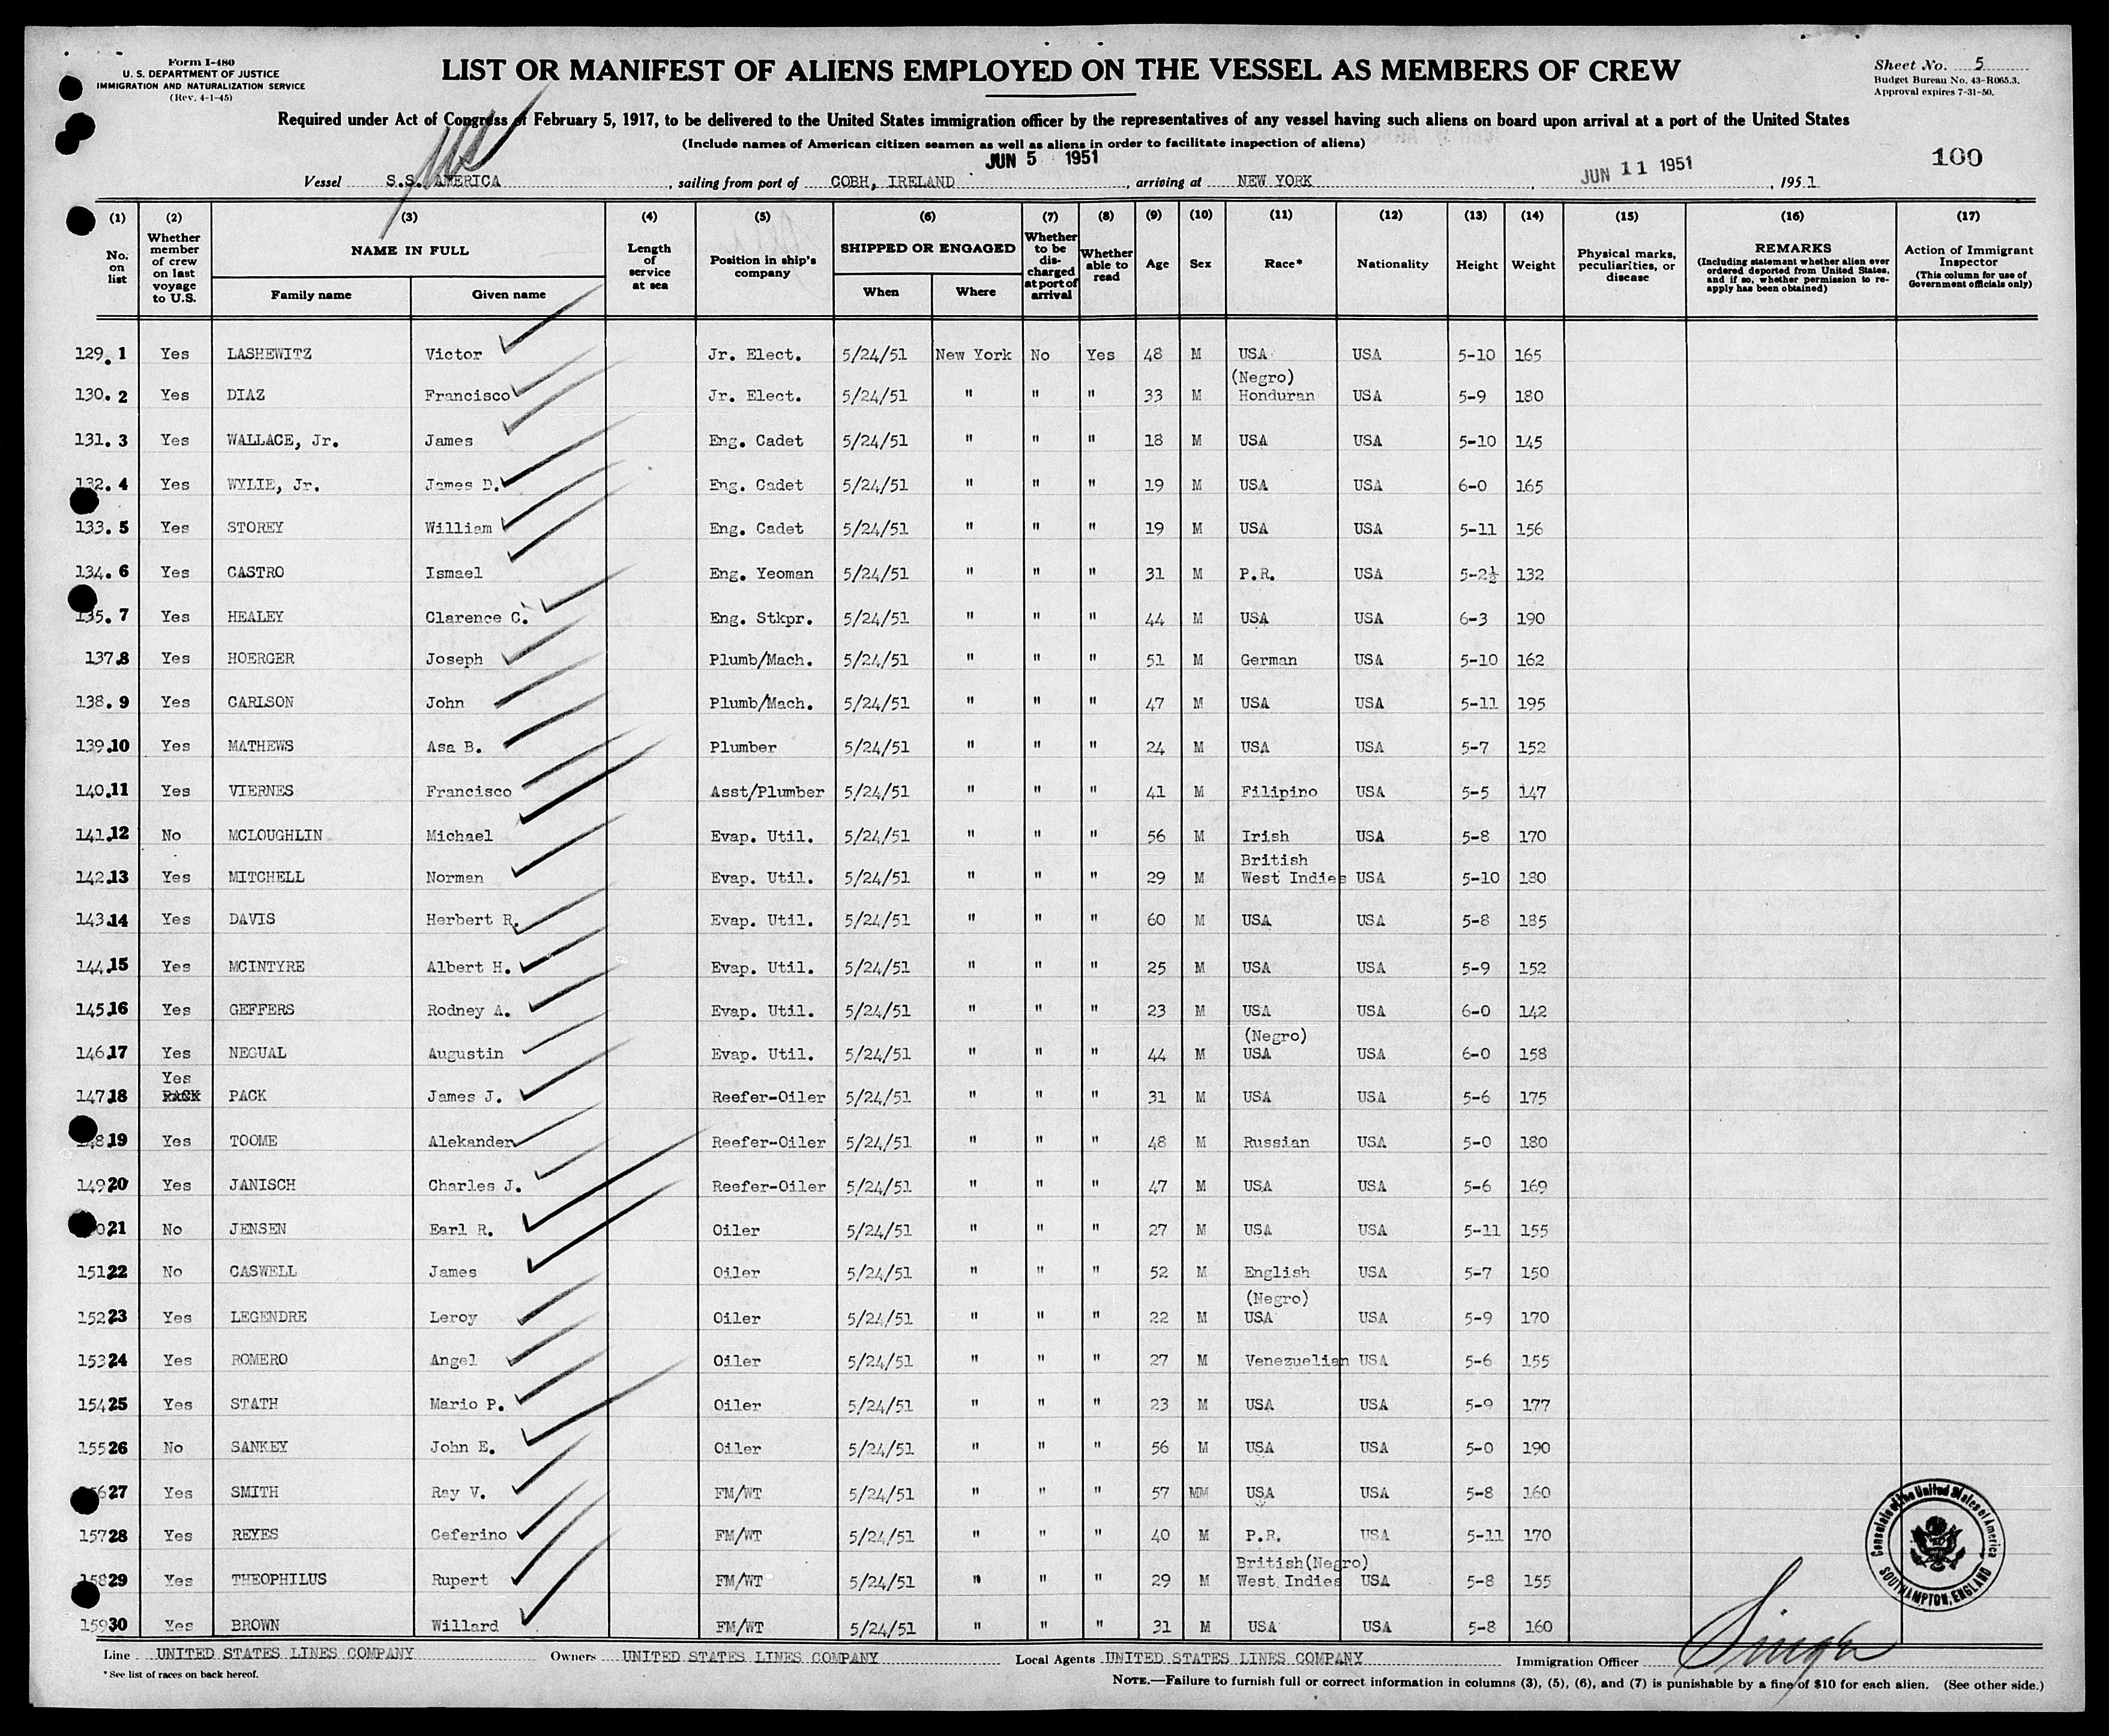 Form I-480
U. S. DEPARTMENT OF JUSTICE
IMMIGRATION AND NATURALIZATION SERVICE
(Rev. 4-1-45)
LIST OR MANIFEST OF ALIENS EMPLOYED ON THE VESSEL AS MEMBERS OF CREW
Sheet No. 5
Budget Bureau No. 43-R065.3.
Approval expires 7-31-50.
Required under Act of Congress of February 5, 1917, to be delivered to the United States immigration officer by the representatives of any vessel having such aliens on board upon arrival at a port of the United States
(Include names of American citizen seamen as well as aliens in order to facilitate inspection of aliens)
JUN 5 1951
100
Vessel S.S. AMERICA, sailing from port of COBH, IRELAND, arriving at NEW YORK, JUN 11 1951, 1951
(1) (2) (3) (4) (5) (6) (7) (8) (9) (10) (11) (12) (13) (14) (15) (16) (17)
No. on list
Whether member of crew on last voyage to U.S.
NAME IN FULL
Family name
Given name
Length of service at sea
Position in ship's company
SHIPPED OR ENGAGED
When
Where
Whether to be discharged at port of arrival
Whether able to read
Age
Sex
Race*
Nationality
Height
Weight
Physical marks, peculiarities, or disease
REMARKS
(Including statement whether alien ever ordered deported from United States, and if so, whether permission to reapply has been obtained)
Action of Immigrant Inspector
(This column for use of Government officials only)
129. 1 Yes LASHEWITZ Victor Jr. Elect. 5/24/51 New York No Yes 48 M USA USA 5-10 165
(Negro)
130. 2 Yes DIAZ Francisco Jr. Elect. 5/24/51 " " " 33 M Honduran USA 5-9 180
131. 3 Yes WALLACE, Jr. James Eng. Cadet 5/24/51 " " " 18 M USA USA 5-10 145
132. 4 Yes WYLIE, Jr. James D. Eng. Cadet 5/24/51 " " " 19 M USA USA 6-0 165
133. 5 Yes STOREY William Eng. Cadet 5/24/51 " " " 19 M USA USA 5-11 156
134. 6 Yes CASTRO Ismael Eng. Yeoman 5/24/51 " " " 31 M P.R. USA 5-2½ 132
135. 7 Yes HEALEY Clarence C. Eng. Stkpr. 5/24/51 " " " 44 M USA USA 6-3 190
137. 8 Yes HOERGER Joseph Plumb/Mach. 5/24/51 " " " 51 M German USA 5-10 162
138. 9 Yes CARLSON John Plumb/Mach. 5/24/51 " " " 47 M USA USA 5-11 195
139. 10 Yes MATHEWS Asa B. Plumber 5/24/51 " " " 24 M USA USA 5-7 152
140. 11 Yes VIERNES Francisco Asst/Plumber 5/24/51 " " " 41 M Filipino USA 5-5 147
141. 12 No MCLOUGHLIN Michael Evap. Util. 5/24/51 " " " 56 M Irish USA 5-8 170
British
142. 13 Yes MITCHELL Norman Evap. Util. 5/24/51 " " " 29 M West Indies USA 5-10 180
143. 14 Yes DAVIS Herbert R. Evap. Util. 5/24/51 " " " 60 M USA USA 5-8 185
144. 15 Yes MCINTYRE Albert H. Evap. Util. 5/24/51 " " " 25 M USA USA 5-9 152
145. 16 Yes GEFFERS Rodney A. Evap. Util. 5/24/51 " " " 23 M USA USA 6-0 142
(Negro)
146. 17 Yes NEGUAL Augustin Evap. Util. 5/24/51 " " " 44 M USA USA 6-0 158
Yes
147. 18 PACK PACK James J. Reefer-Oiler 5/24/51 " " " 31 M USA USA 5-6 175
19 Yes TOOME Alekander Reefer-Oiler 5/24/51 " " " 48 M Russian USA 5-0 180
149 20 Yes JANISCH Charles J. Reefer-Oiler 5/24/51 " " " 47 M USA USA 5-6 169
21 No JENSEN Earl R. Oiler 5/24/51 " " " 27 M USA USA 5-11 155
151 22 No CASWELL James Oiler 5/24/51 " " " 52 M English USA 5-7 150
(Negro)
152 23 Yes LEGENDRE Leroy Oiler 5/24/51 " " " 22 M USA USA 5-9 170
153 24 Yes ROMERO Angel Oiler 5/24/51 " " " 27 M Venezuelian USA 5-6 155
154 25 Yes STATH Mario P. Oiler 5/24/51 " " " 23 M USA USA 5-9 177
155 26 No SANKEY John E. Oiler 5/24/51 " " " 56 M USA USA 5-0 190
27 Yes SMITH Ray V. FM/WT 5/24/51 " " " 57 MM USA USA 5-8 160
157 28 Yes REYES Ceferino FM/WT 5/24/51 " " " 40 M P.R. USA 5-11 170
British(Negro)
158 29 Yes THEOPHILUS Rupert FM/WT 5/24/51 " " " 29 M West Indies USA 5-8 155
159 30 Yes BROWN Willard FM/WT 5/24/51 " " " 31 M USA USA 5-8 160
Consulate of the United States of America
SOUTHAMPTON, ENGLAND
Line UNITED STATES LINES COMPANY Owners UNITED STATES LINES COMPANY Local Agents UNITED STATES LINES COMPANY Immigration Officer
*See list of races on back hereof.
NOTE.—Failure to furnish full or correct information in columns (3), (5), (6), and (7) is punishable by a fine of $10 for each alien. (See other side.)